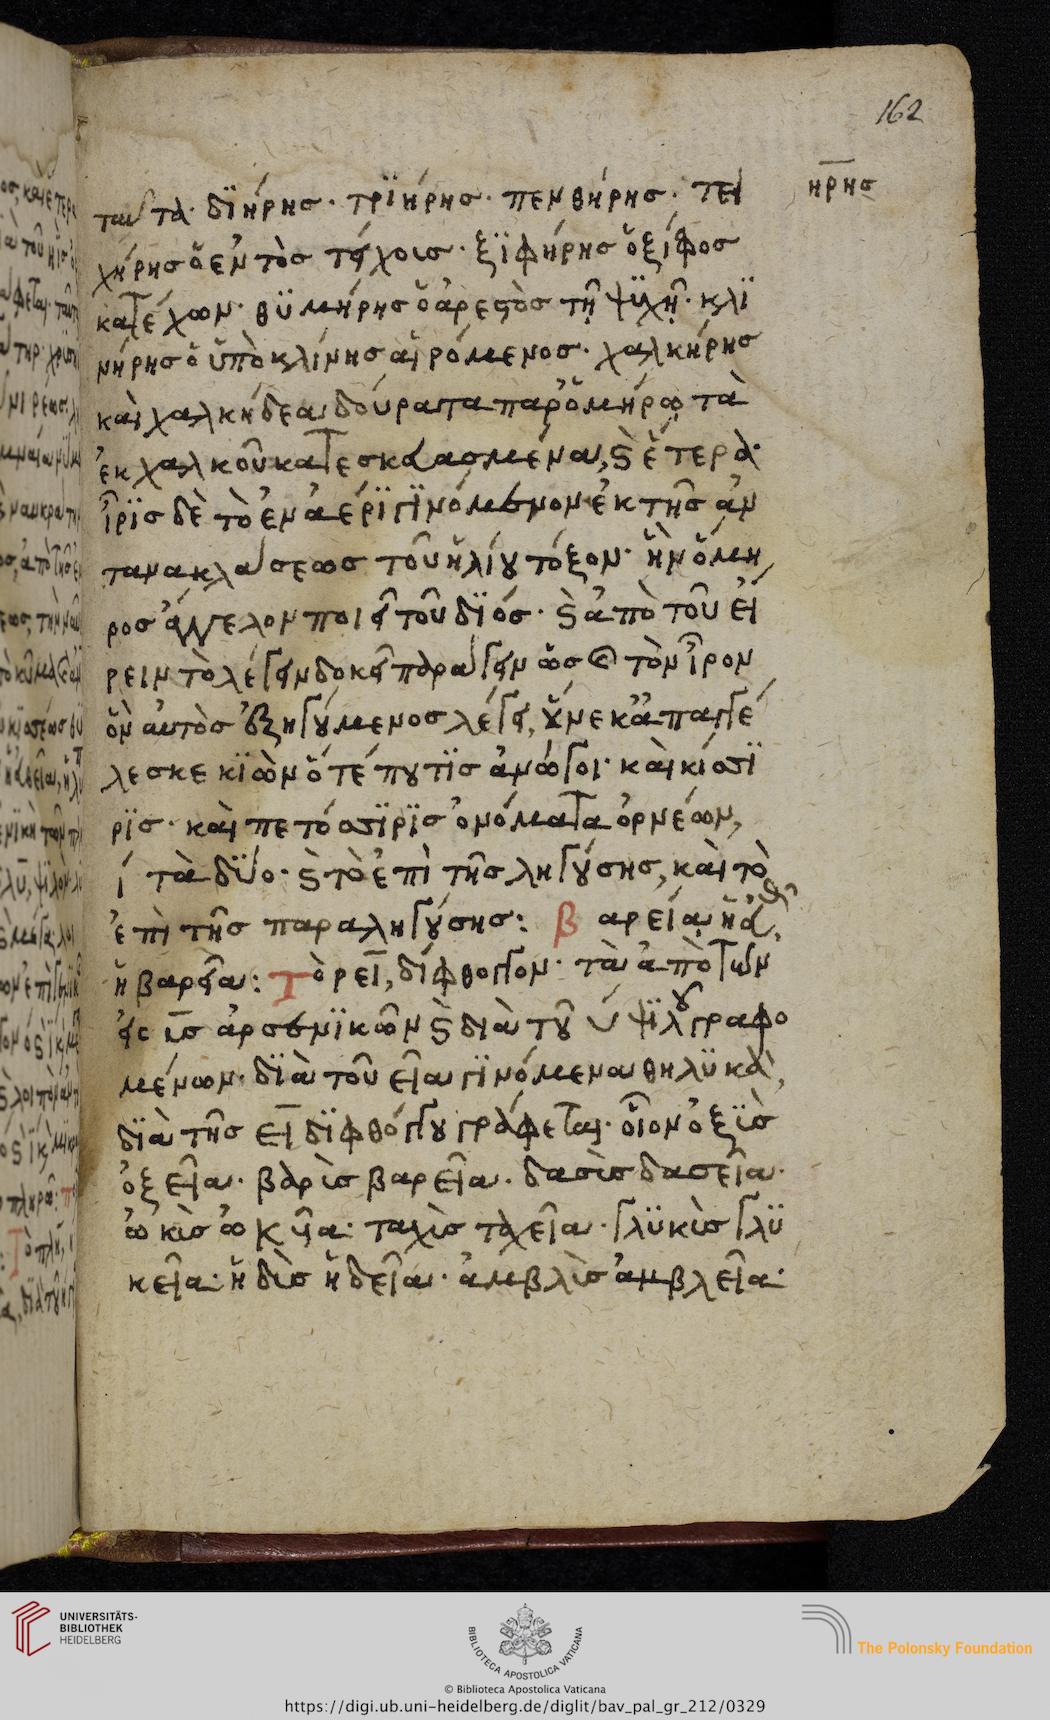 162
ταῦτα· δϊήρης· τρϊήρης· πενθήρης· τει
ηρης
χήρης ὁ ἐν τὸς τείχοισ· ξϊφήρης ὁ ξίφος
κατέχων· θϋμήρης ὁ ἀρεστὸς τῆ ψϋχῆ· κλϊ
νήρης ὁ ὑπὸ κλίνης αἱρόμενος· χαλκήρης
καὶ χαλκήδεα δούρατα παρ' ὁμήρω τὰ
ἐκ χαλκοῦ κατεσκευασμένα, καὶ ἕτερα·
ἶρϊς δὲ τὸ ἐν ἀέρϊ γϊνόμενον ἐκ τῆς ἀν
τανακλάσεως τοῦ ἡλίου τόξον· ἣν ὅμη
ρος ἄγγελον ποιεῖ τοῦ δϊός· καὶ ἀπὸ τοῦ εἴ
ρειν τὸ λέγειν δοκεῖ παράγειν ὡς καὶ τὸν ἶρον
ὃν αὐτὸς ἐξηγούμενος λέγει, οὕνεκ' ἀπαγγέ
λεσκε κϊὼν ὅτέ που τϊς ἀνώγοι· καὶ κίασϊ
ρϊς· καὶ πετόασϊρϊς ὀνόματα ὀρνέων,
ι τὰ δύο· καὶ τὸ ἐπὶ τῆς ληγούσης, καὶ τὸ
ἐπὶ τῆς παραληγούσης: βαρεία ἡ
ἡ βαρεῖα: Τὸ ρει, δίφθογγον· τὰ ἀπὸ τῶν
εἰς ις ἀρσενϊκῶν καὶ διὰ τοῦ υ ψϊλοῦ γραφο
μένων· δϊὰ τοῦ εια γϊνόμενα θηλϋκὰ,
δϊὰ τῆς ει δϊφθόγγου γράφεται· οἷον ὀξϊς
ὀξεῖα· βαρὶς βαρεῖα· δασὶς δασεῖα·
ὠκὶς ὠκεῖα· ταχὶς ταχεῖα· γλϋκὶς γλϋ
κεῖα· ἡδὶς ἡδεῖα· ἀμβλὶς ἀμβλεῖα·
UNIVERSITÄTS-
BIBLIOTHEK
HEIDELBERG
BIBLIOTECA APOSTOLICA VATICANA
The Polonsky Foundation
© Biblioteca Apostolica Vaticana
https://digi.ub.uni-heidelberg.de/diglit/bav_pal_gr_212/0329